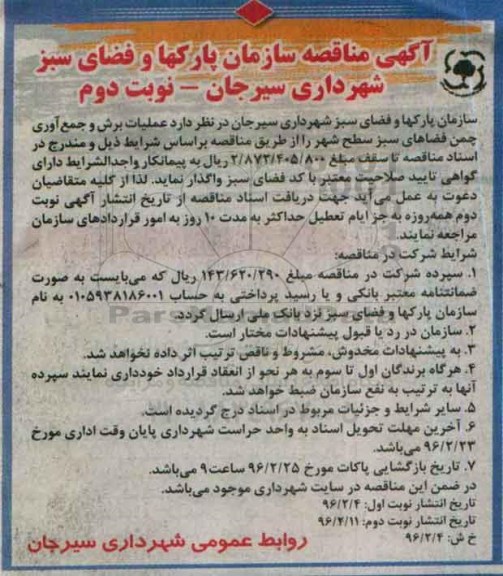 آگهی مناقصه سازمان پارکها و فضای سبز
شهرداری سیرجان - نوبت دوم
سازمان پارکها و فضای سبز شهرداری سیرجان در نظر دارد عملیات برش و جمع‌آوری
چمن فضاهای سبز سطح شهر را از طریق مناقصه براساس شرایط ذیل و مندرج در
اسناد مناقصه تا سقف مبلغ ۲/۸۷۳/۴۰۵/۸۰۰ ریال به پیمانکار واجدالشرایط دارای
گواهی تایید صلاحیت معتبر با کد فضای سبز واگذار نماید. لذا از کلیه متقاضیان
دعوت به عمل می‌آید جهت دریافت اسناد مناقصه از تاریخ انتشار آگهی نوبت
دوم همه‌روزه به جز ایام تعطیل حداکثر به مدت ۱۰ روز به امور قراردادهای سازمان
مراجعه نمایند.
شرایط شرکت در مناقصه:
۱. سپرده شرکت در مناقصه مبلغ ۱۴۳/۶۲۰/۲۹۰ ریال که می‌بایست به صورت
ضمانتنامه معتبر بانکی و یا رسید پرداختی به حساب ۰۱۰۵۹۳۸۱۸۶۰۰۱ به نام
سازمان پارکها و فضای سبز نزد بانک ملی ارسال گردد.
۲. سازمان در رد یا قبول پیشنهادات مختار است.
۳. به پیشنهادات مخدوش، مشروط و ناقص ترتیب اثر داده نخواهد شد.
۴. هرگاه برندگان اول تا سوم به هر نحو از انعقاد قرارداد خودداری نمایند سپرده
آنها به ترتیب به نفع سازمان ضبط خواهد شد.
۵. سایر شرایط و جزئیات مربوط در اسناد درج گردیده است.
۶. آخرین مهلت تحویل اسناد به واحد حراست شهرداری پایان وقت اداری مورخ
۹۶/۲/۲۳ می‌باشد.
۷. تاریخ بازگشایی پاکات مورخ ۹۶/۲/۲۵ ساعت ۹ می‌باشد.
در ضمن این مناقصه در سایت شهرداری موجود می‌باشد.
تاریخ انتشار نوبت اول: ۹۶/۲/۴
تاریخ انتشار نوبت دوم: ۹۶/۲/۱۱
خ ش: ۹۶/۲/۴
روابط عمومی شهرداری سیرجان